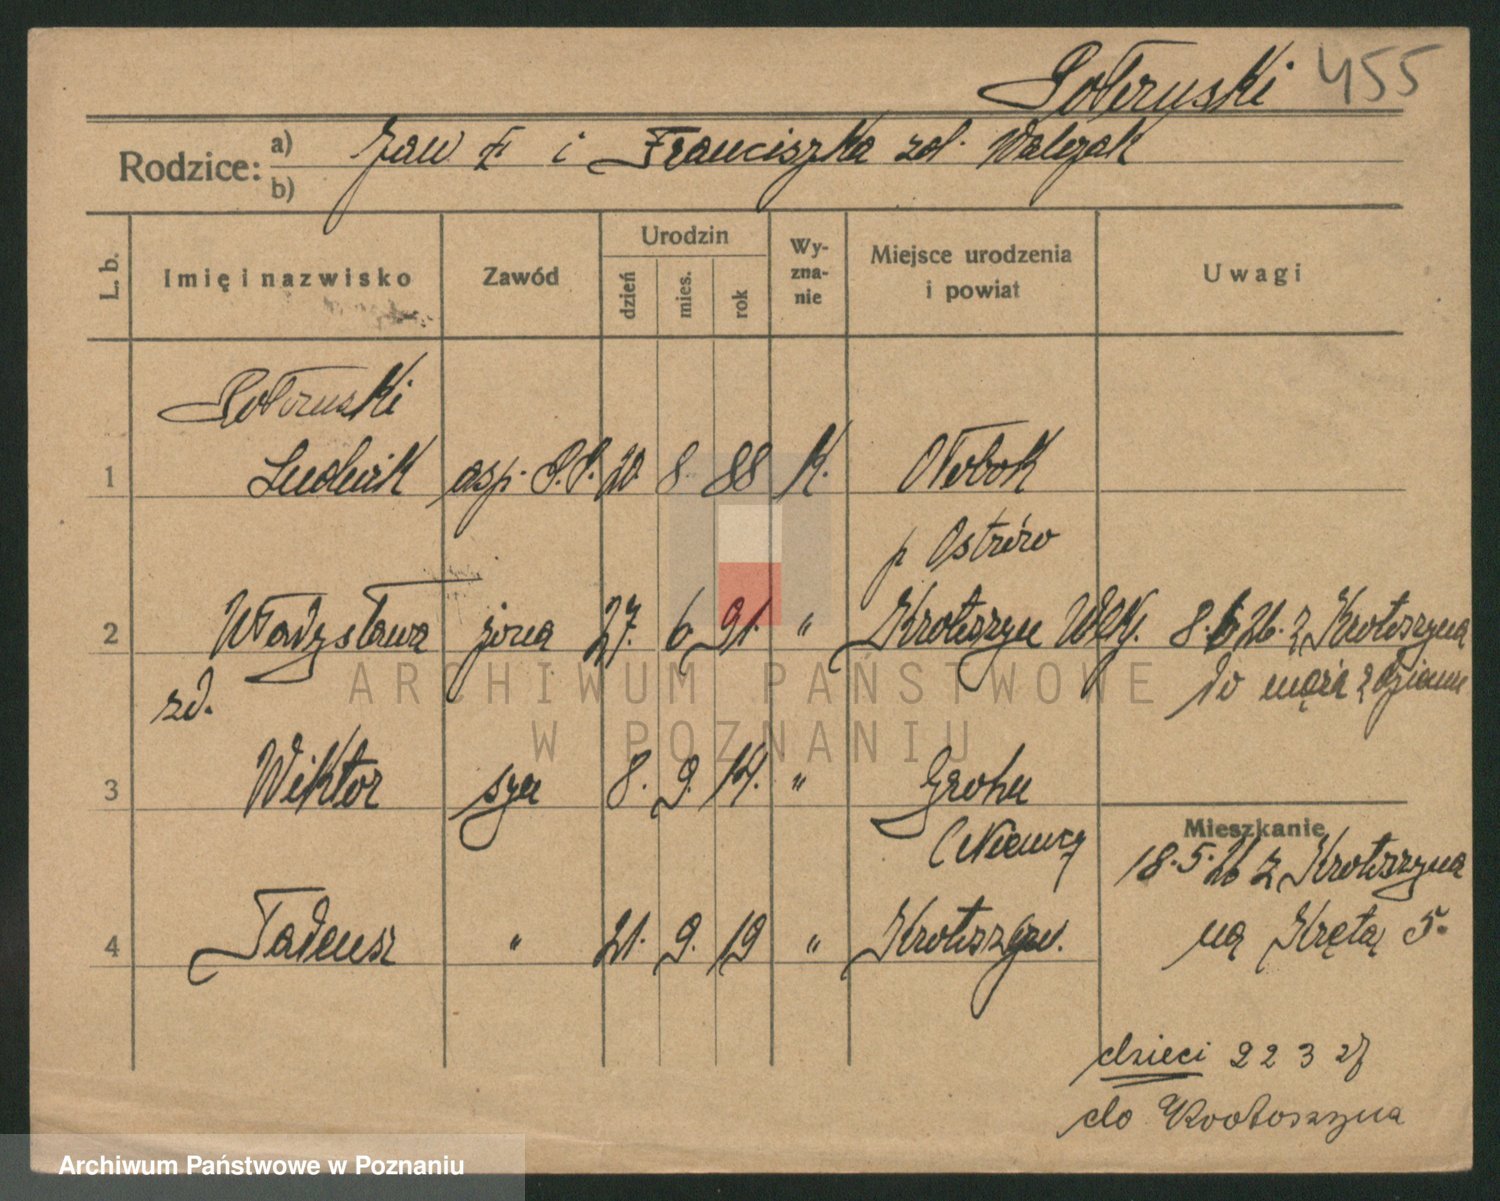 455
Rodzice: a) Jan i Franciszka zd. Walczak
b)
L. b.
Imię i nazwisko
Zawód
Urodzin
dzień
mies.
rok
Wy-
zna-
nie
Miejsce urodzenia
i powiat
Uwagi
1 Ludwik asp. P.P. 20. 8. 88 K. Ołobok
p Ostrów
2 Władysława żona 27. 6 91. " Krotoszyn 8.6 26. z Krotoszyna
zd. do męża
3 Wiktor syn 8. 9. 14. "
Niemcy
Mieszkanie
18.5.26 z Krotoszyna
na Krętą 5.
4 Tadeusz " 21. 9. 19 " Krotoszyn.
dzieci 22 3 27
do Krotoszyna
ARCHIWUM PAŃSTWOWE
W POZNANIU
Archiwum Państwowe w Poznaniu